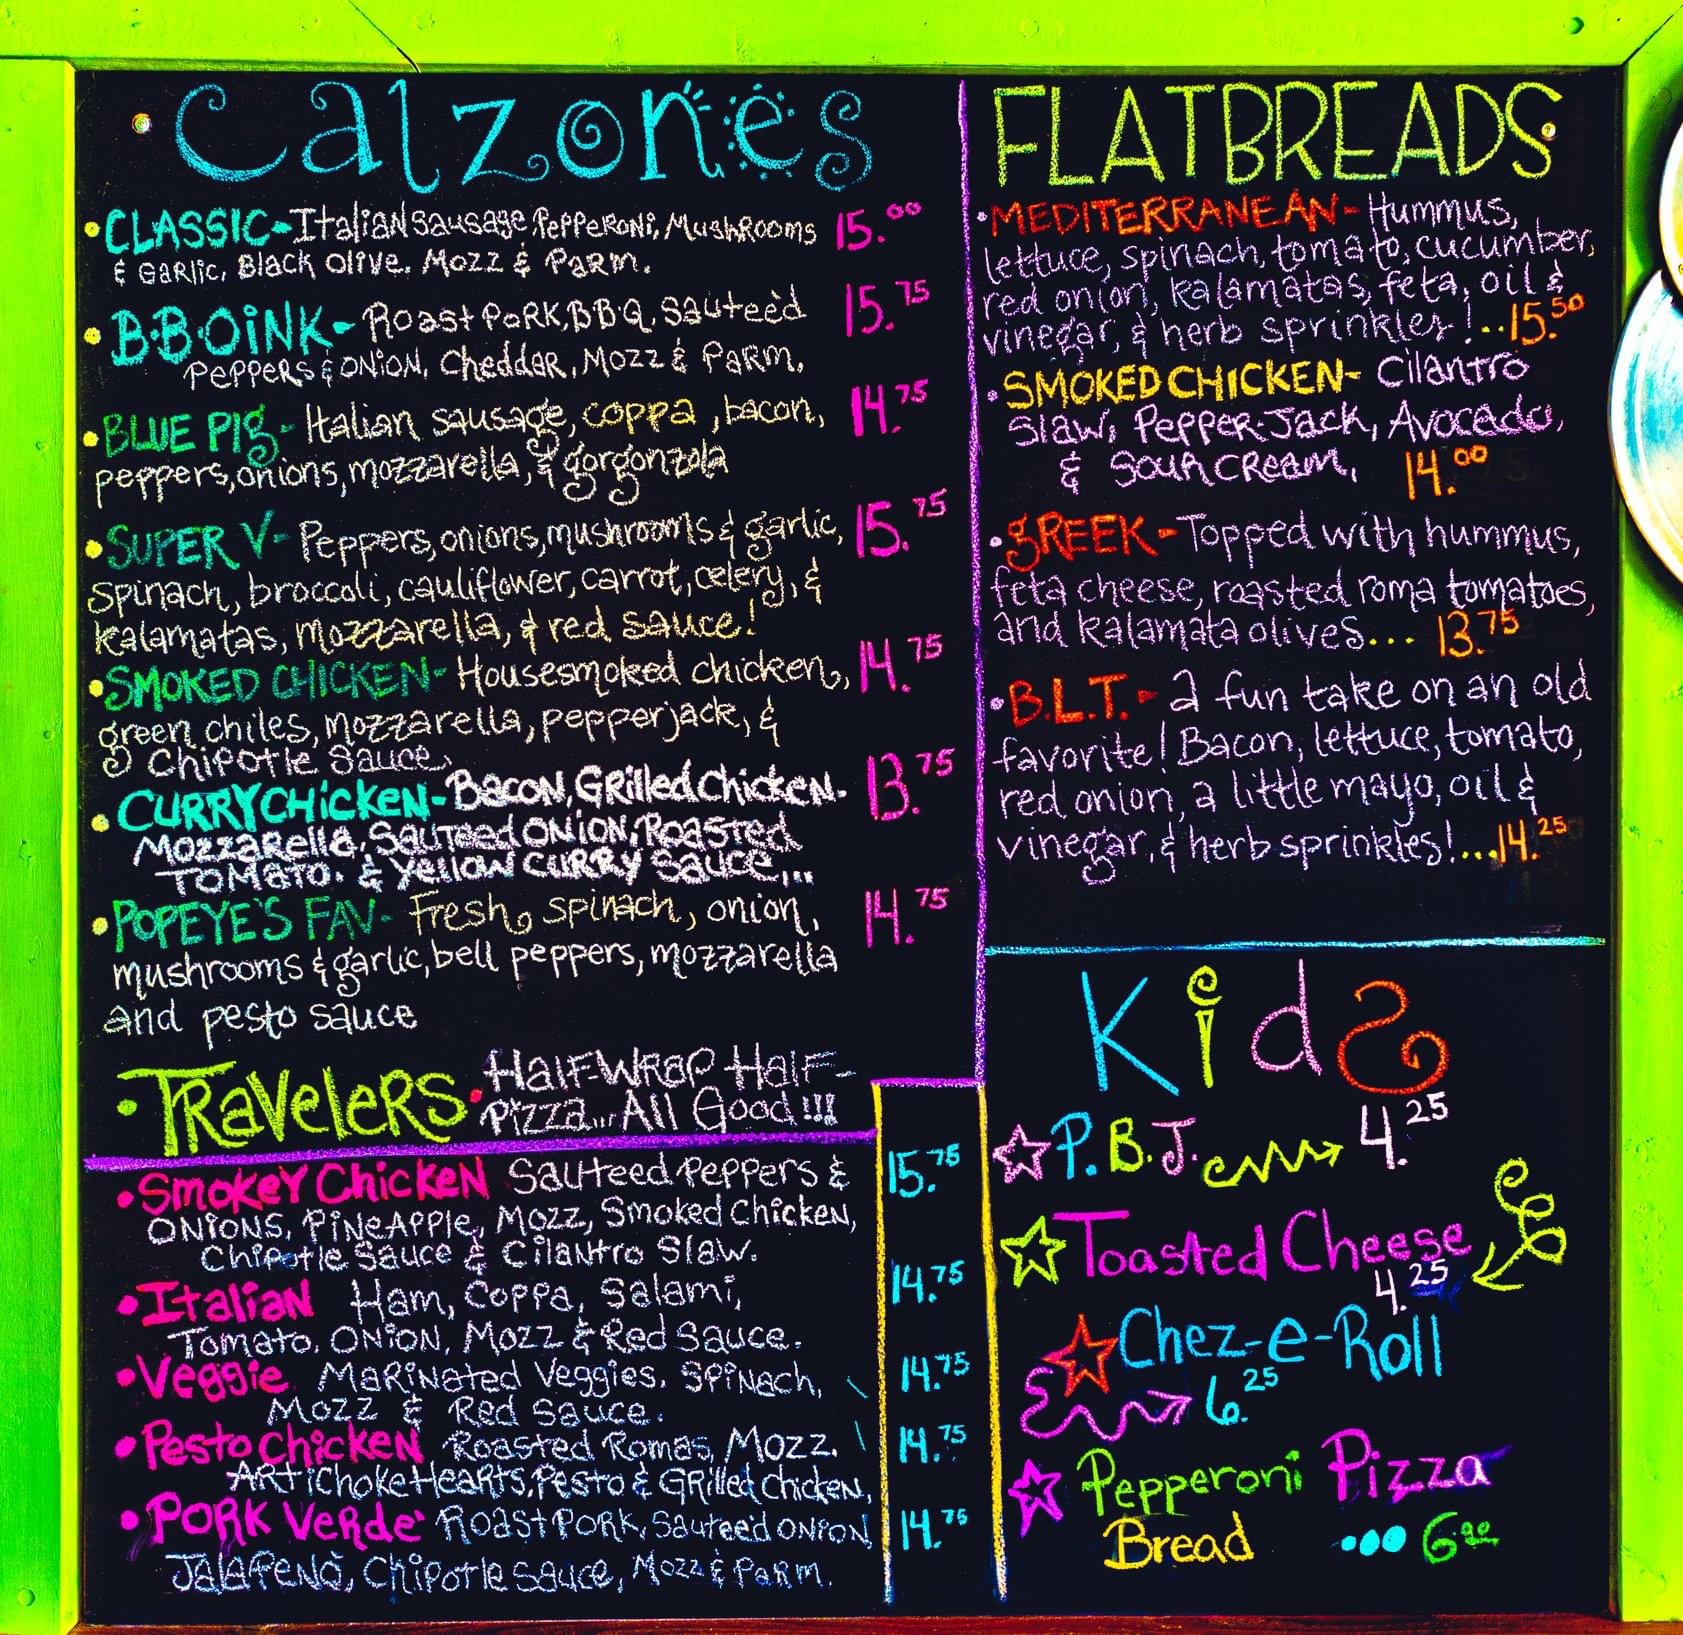 Calzones
• CLASSIC- Italian Sausage, Pepperoni, Mushrooms 15.00
& Garlic, Black Olive. Mozz & Parm.
• B.B.OiNK- Roast Pork, BBQ, Sauteèd 15.75
Peppers & Onion, Cheddar, Mozz & Parm.
• BLUE PIg- Italian sausage, coppa, bacon, 14.75
peppers, onions, mozzarella, & gorgonzola
• SUPER V- Peppers, onions, mushrooms & garlic, 15.75
spinach, broccoli, cauliflower, carrot, celery, &
kalamatas, mozzarella, & red sauce!
• SMOKED CHICKEN- Housesmoked chicken, 14.75
green chiles, mozzarella, pepperjack, &
Chipotle Sauce.
• CURRY CHiCKeN- Bacon, Grilled Chicken. 13.75
Mozzarella, Sauteed Onion, Roasted
Tomato. & Yellow Curry Sauce...
• POPEYE'S FAV- Fresh, spinach, onion, 14.75
mushrooms & garlic, bell peppers, mozzarella
and pesto sauce
• TRavelers • Half-Wrap Half-
Pizza... All Good!!!
• Smokey Chicken Sauteed Peppers & 15.75
Onions, Pineapple, Mozz, Smoked Chicken,
Chipotle Sauce & Cilantro Slaw.
• Italian Ham, Coppa, Salami, 14.75
Tomato. Onion, Mozz & Red Sauce.
• Veggie Marinated Veggies. Spinach, 14.75
Mozz & Red Sauce.
• Pesto Chicken Roasted Romas, Mozz. 14.75
Artichoke Hearts, Pesto & Grilled Chicken,
• PORK VeRde Roast Pork, Sauteed Onion 14.75
Jalapeno, Chipotle Sauce, Mozz & Parm.
FLATBREADS
• MEDITERRANEAN- Hummus,
lettuce, spinach, tomato, cucumber,
red onion, kalamatas, feta, oil &
vinegar, & herb sprinkles!..15.50
• SMOKED CHICKEN- Cilantro
Slaw, Pepper-Jack, Avocado,
& Sour Cream, 14.00
• gREEK- Topped with hummus,
feta cheese, roasted roma tomatoes,
and kalamata olives... 13.75
• B.L.T.- a fun take on an old
favorite! Bacon, lettuce, tomato,
red onion, a little mayo, oil &
vinegar, & herb sprinkles!...14.25
KidS
P.B.J. 4.25
Toasted Cheese
4.25
Chez-e-Roll
6.25
Pepperoni Pizza
Bread ... 6